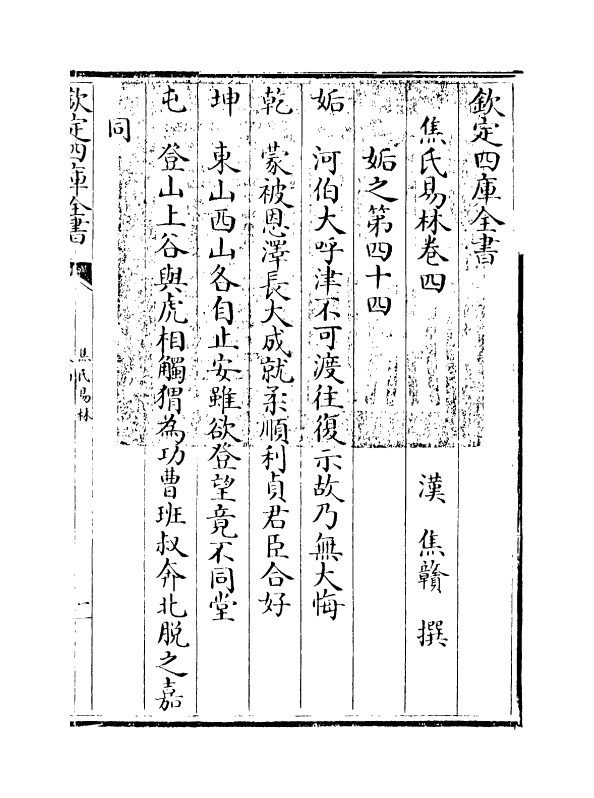 欽定四庫全書
焦氏易林卷四
漢 焦贛 撰
姤之第四十四
姤 河伯大呼津不可渡往復示故乃無大悔
乾 蒙被恩澤長大成就柔順利貞君臣合好
坤 東山西山各自止安雖欲登望竟不同堂
屯 登山上谷與虎相觸猬為功曹班叔奔北脱之嘉
同
欽定四庫全書
焦氏易林
一